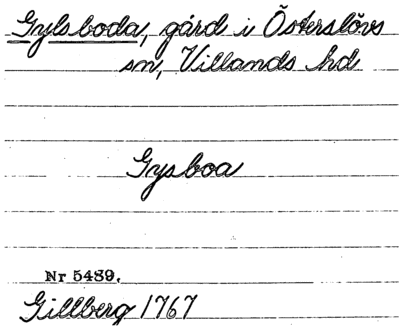 Gylsboda, gård i Österslövs
sn, Villands hd
Gysboa
Nr 5489.
Gillberg 1767